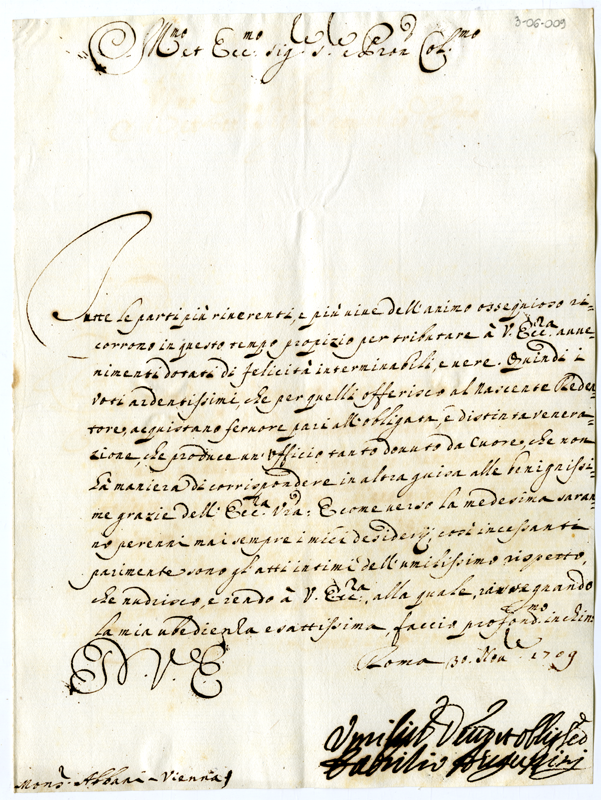 3-06-009
Ill.mo et Ecc.mo Sig.r S.r e Pron Col.mo
Tutte le parti più riverenti, e più vive dell'animo ossequioso ri-
corrono in questo tempo propizio per tributare à V. Ecc.za avve-
nimenti dotati di felicità interminabili, e vere. Quindi i
voti ardentissimi, che per quelli offerisco al Nascente Reden-
tore, acquistano fervore pari all'obligata, e distinta venera-
zione, che produce un'Officio tanto dovuto da Cuore, che non
hà maniera di corrispondere in altra guisa alle benignissi-
me grazie dell'Ecc.za Vra; E come verso la medesima saran-
no perenni mai sempre i miei desiderij, così incessante
parimente sono gl'atti intimi dell'umilissimo rispetto,
che nudrisco, e rendo à V. Ecc.za, alla quale,
la mia ubedienza esattissima, faccio profond.mo inchino
D. V. E. Roma 30. Nov.e 1709
Mons.r Albani - Vienna